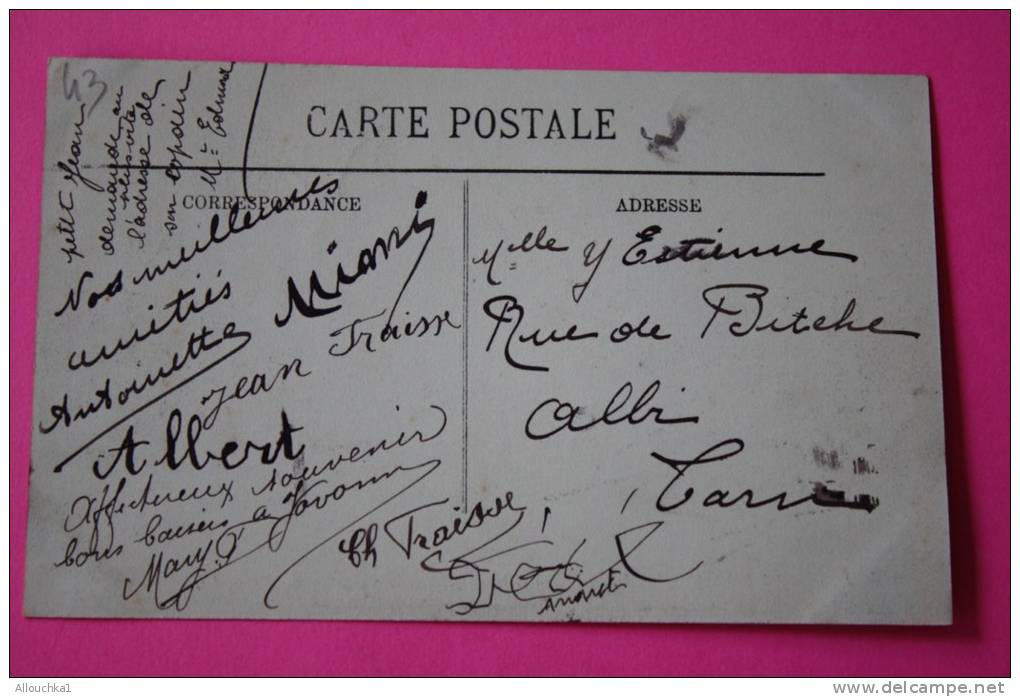 43
petit Jean
demande au
plus vite
l'adresse de
son copain
Mr Edmond
CARTE POSTALE
CORRESPONDANCE
ADRESSE
Nos meilleures
amitiés
Antoinette
Miani
Jean Fraisse
Albert
Affectueux souvenir
bons baisers a Yvonne
Mary. F
Ch Fraisse
Melle Y Estienne
Rue de Bitche
Albi
Tarn
Allouchka1
www.delcampe.net